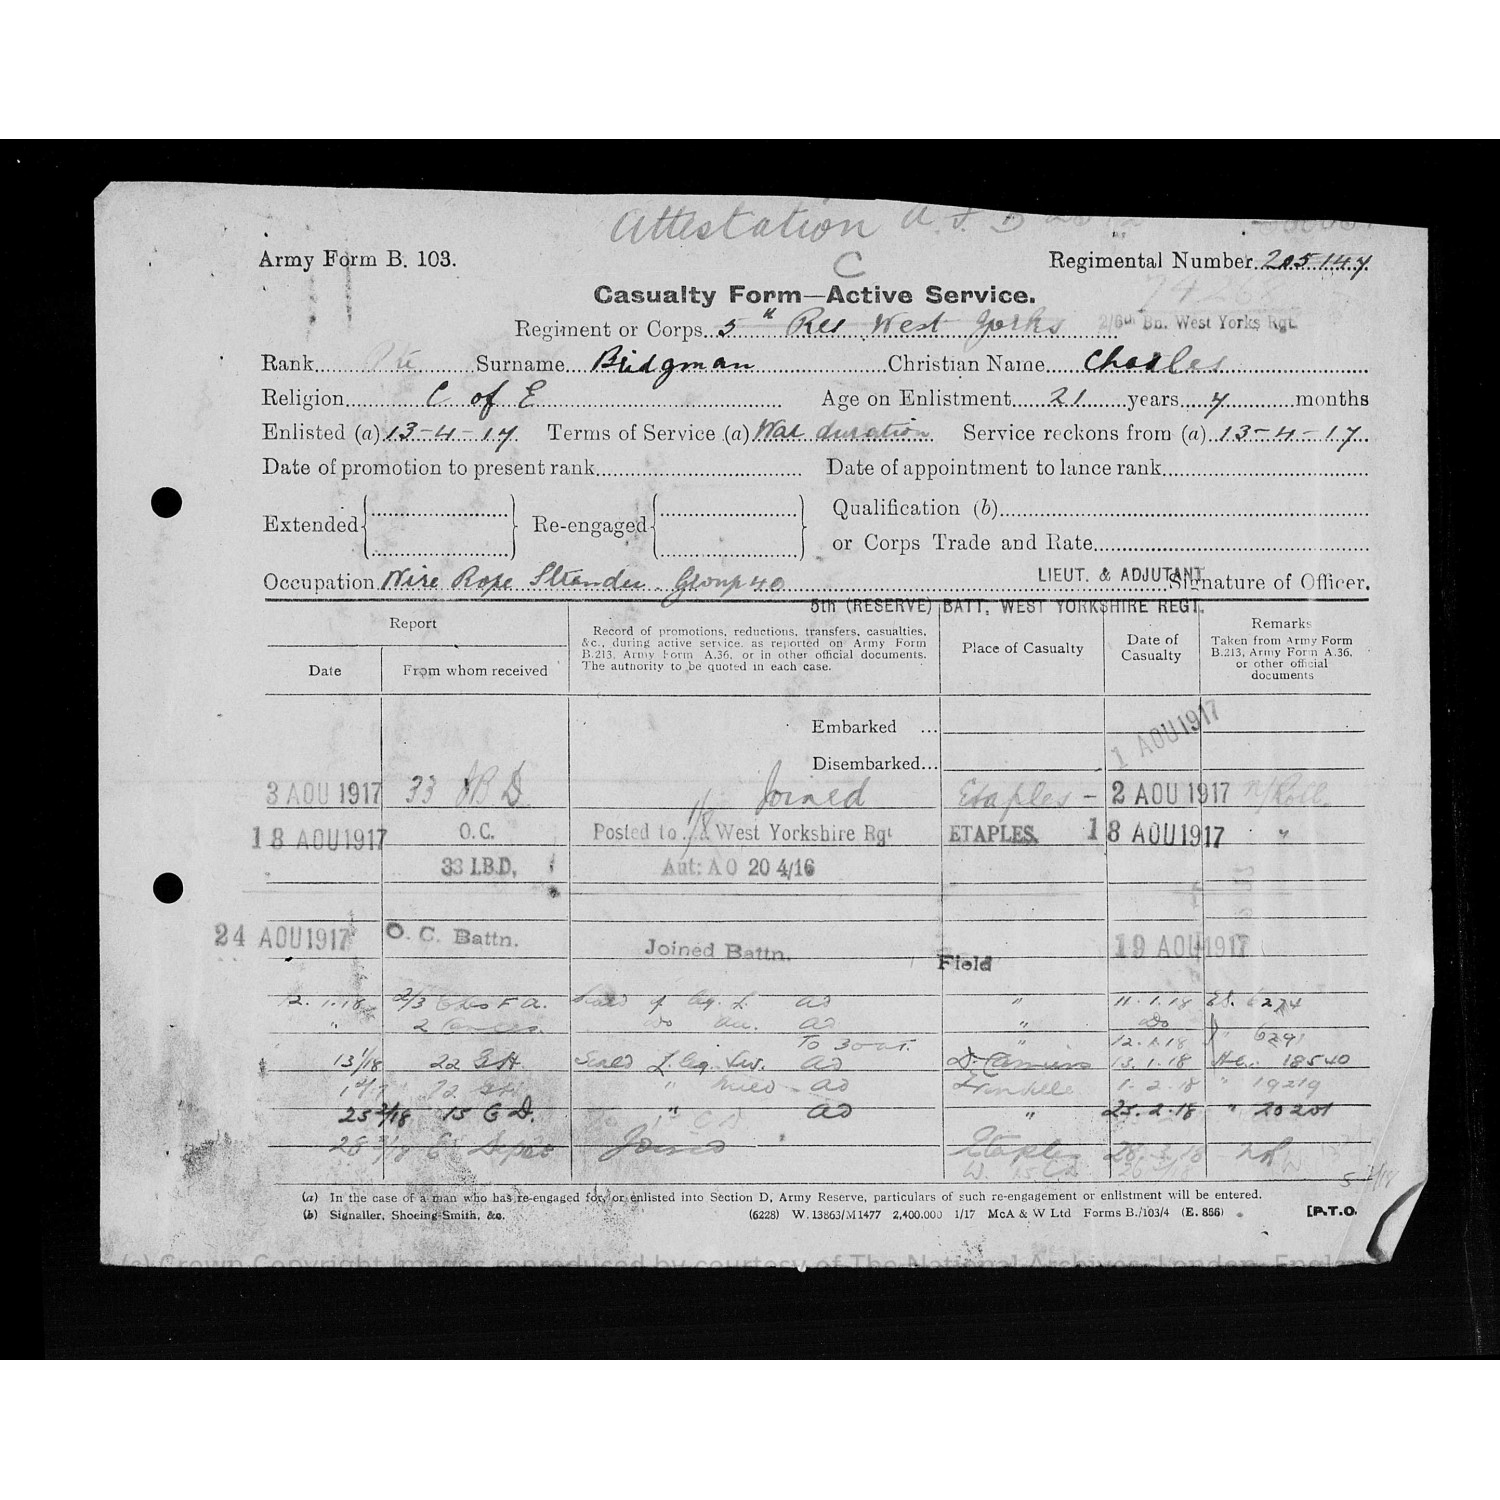 Attestation
Army Form B. 103.
C
Regimental Number 205147
74268
Casualty Form—Active Service.
Regiment or Corps 5th Res West Yorks 2/6th Bn. West Yorks Rgt.
Rank Pte Surname Bridgman Christian Name Charles
Religion C of E Age on Enlistment 21 years 7 months
Enlisted (a) 13-4-17 Terms of Service (a) War duration Service reckons from (a) 13-4-17
Date of promotion to present rank Date of appointment to lance rank
Extended Re-engaged Qualification (b)
or Corps Trade and Rate
Occupation Wire Rope Strander Group 40 LIEUT. & ADJUTANT Signature of Officer.
5th (RESERVE) BATT, WEST YORKSHIRE REGT.
Report
Date From whom received
Record of promotions, reductions, transfers, casualties, &c., during active service, as reported on Army Form B.213, Army Form A.36, or in other official documents. The authority to be quoted in each case.
Place of Casualty
Date of Casualty
Remarks
Taken from Army Form B.213, Army Form A.36, or other official documents
Embarked ...
1 AOU 1917
Disembarked...
3 AOU 1917 33 IBD Joined Etaples - 2 AOU 1917 n/Roll
18 AOU 1917 O.C. Posted to 1/8 West Yorkshire Rgt ETAPLES. 18 AOU 1917 "
33 I.B.D, Aut: A O 20 4/16
24 AOU 1917 O. C. Battn. Joined Battn. Field 19 AOU 1917
12.1.18 2/3 F A. AD " 11.1.18 6274
" AD " Do
To 30 " 12.1.18 " 6291
13/1/18 22 GH AD D. Camiers 13.1.18 18540
AD 1.2.18 " 19219
25 2/18 15 C D. " AD " 25.2.18 " 20201
Joined Etaples
(a) In the case of a man who has re-engaged for, or enlisted into Section D, Army Reserve, particulars of such re-engagement or enlistment will be entered.
(b) Signaller, Shoeing-Smith, &c. (6228) W. 13863/M1477 2,400,000 1/17 McA & W Ltd Forms B./103/4 (E. 856) [P.T.O.
(c) Crown Copyright Images reproduced by courtesy of The National Archives, London, England